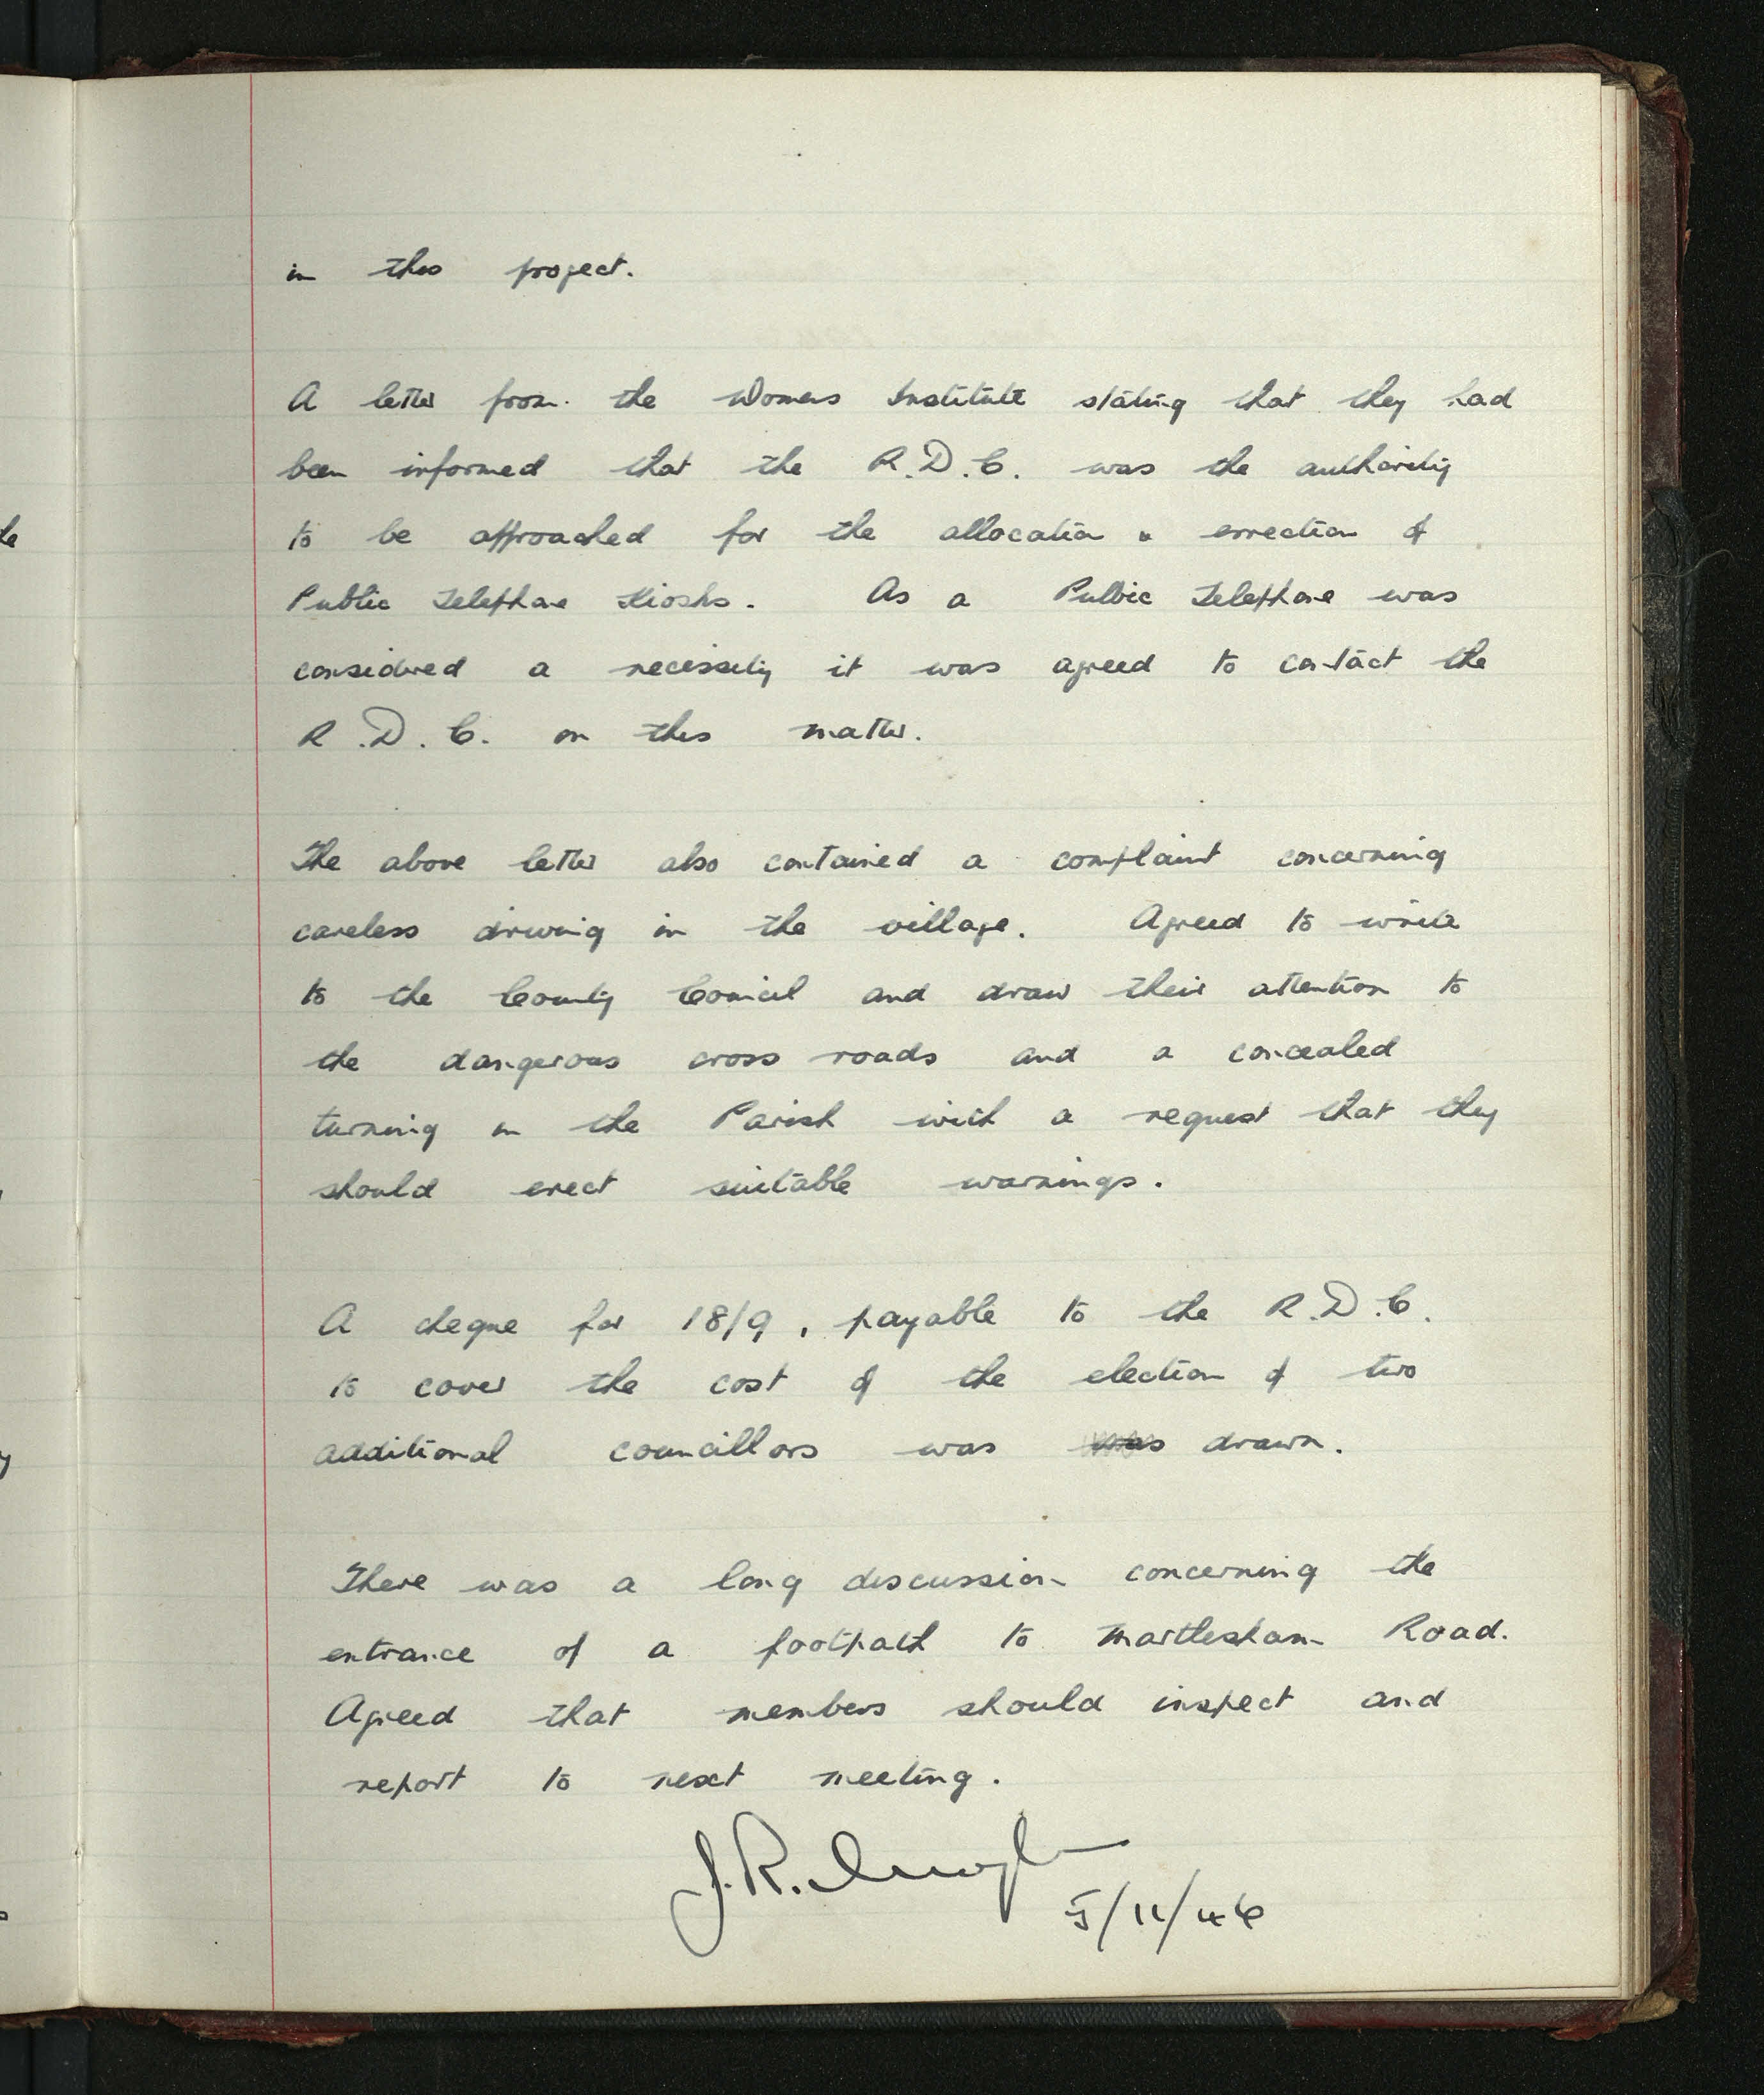 in this project.
A letter from the Womens Institute stating that they had
been informed that the R.D.C. was the authority
to be approached for the allocation & errection of
Public Telephone Kiosks. As a Pulbic Telephone was
considered a necessity it was agreed to contact the
R.D.C. on this matter.
The above letter also contained a complaint concerning
careless driving in the village. Agreed to write
to the County Council and draw their attention to
the dangerous cross roads and a concealed
turning in the Parish with a request that they
should erect suitable warnings.
A cheque for 18/9, payable to the R.D.C.
to cover the cost of the election of two
additional councillors was was drawn.
There was a long discussion concerning the
entrance of a footpath to Martlesham Road.
Agreed that members should inspect and
report to next meeting.
J.R.
5/11/46